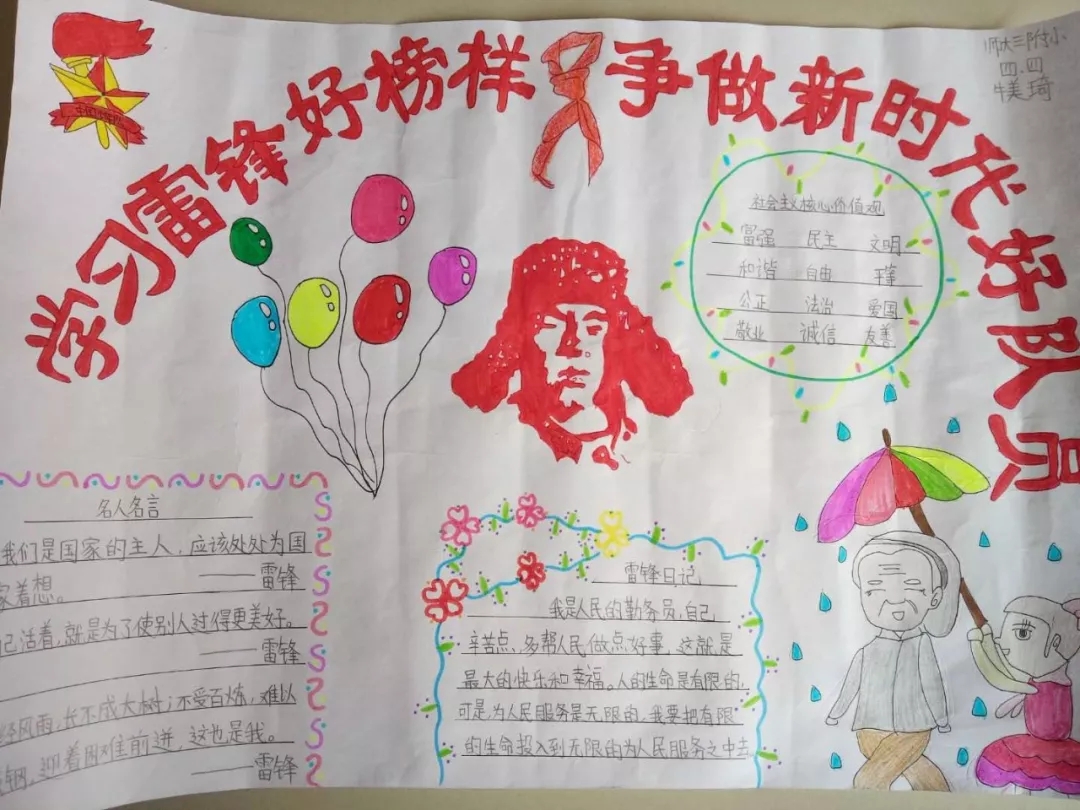 学习雷锋好榜样 争做新时代好队员
师大三附小
四.四
牛美琦
社会主义核心价值观
富强 民主 文明
和谐 自由 平等
公正 法治 爱国
敬业 诚信 友善
名人名言
我们是国家的主人，应该处处为国
家着想。 ——雷锋
己活着，就是为了使别人过得更美好。
——雷锋
经风雨，长不成大树；不受百炼，难以
钢，迎着困难前进，这也是我。
——雷锋
雷锋日记
我是人民的勤务员，自己
辛苦点，多帮人民做点好事，这就是
最大的快乐和幸福。人的生命是有限的，
可是为人民服务是无限的，我要把有限
的生命投入到无限的为人民服务之中去